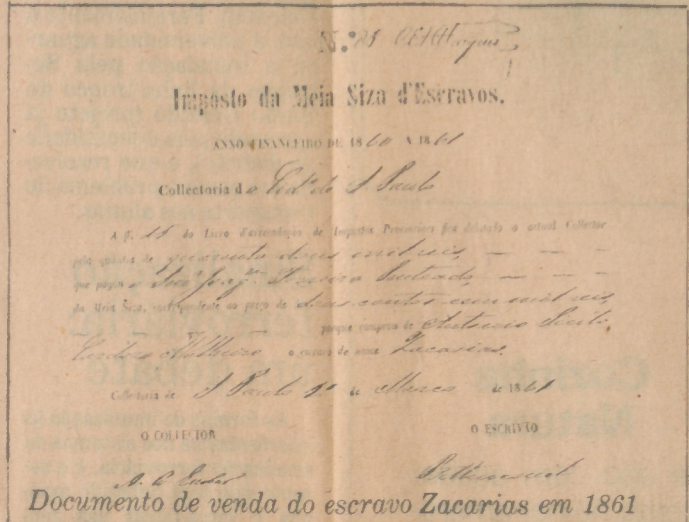 N.º 89
Imposto da Meia Siza d'Escravos.
ANNO FINANCEIRO DE 1860 A 1861
Collectoria da Cid.e de S. Paulo
A f. 11 do Livro d'arrecadação de Impostos fica debitado o actual Collector
pela quantia de quarenta dous mil reis, — — —
que pagou o Joaq.m — — —
da Meia Siza, correspondente ao preço de dous contos cem mil reis,
porque comprou de Antonio
o escravo de nome Zacarias.
Collectoria de S. Paulo 1.º de Março de 1861
O COLLECTOR O ESCRIVÃO
Documento de venda do escravo Zacarias em 1861